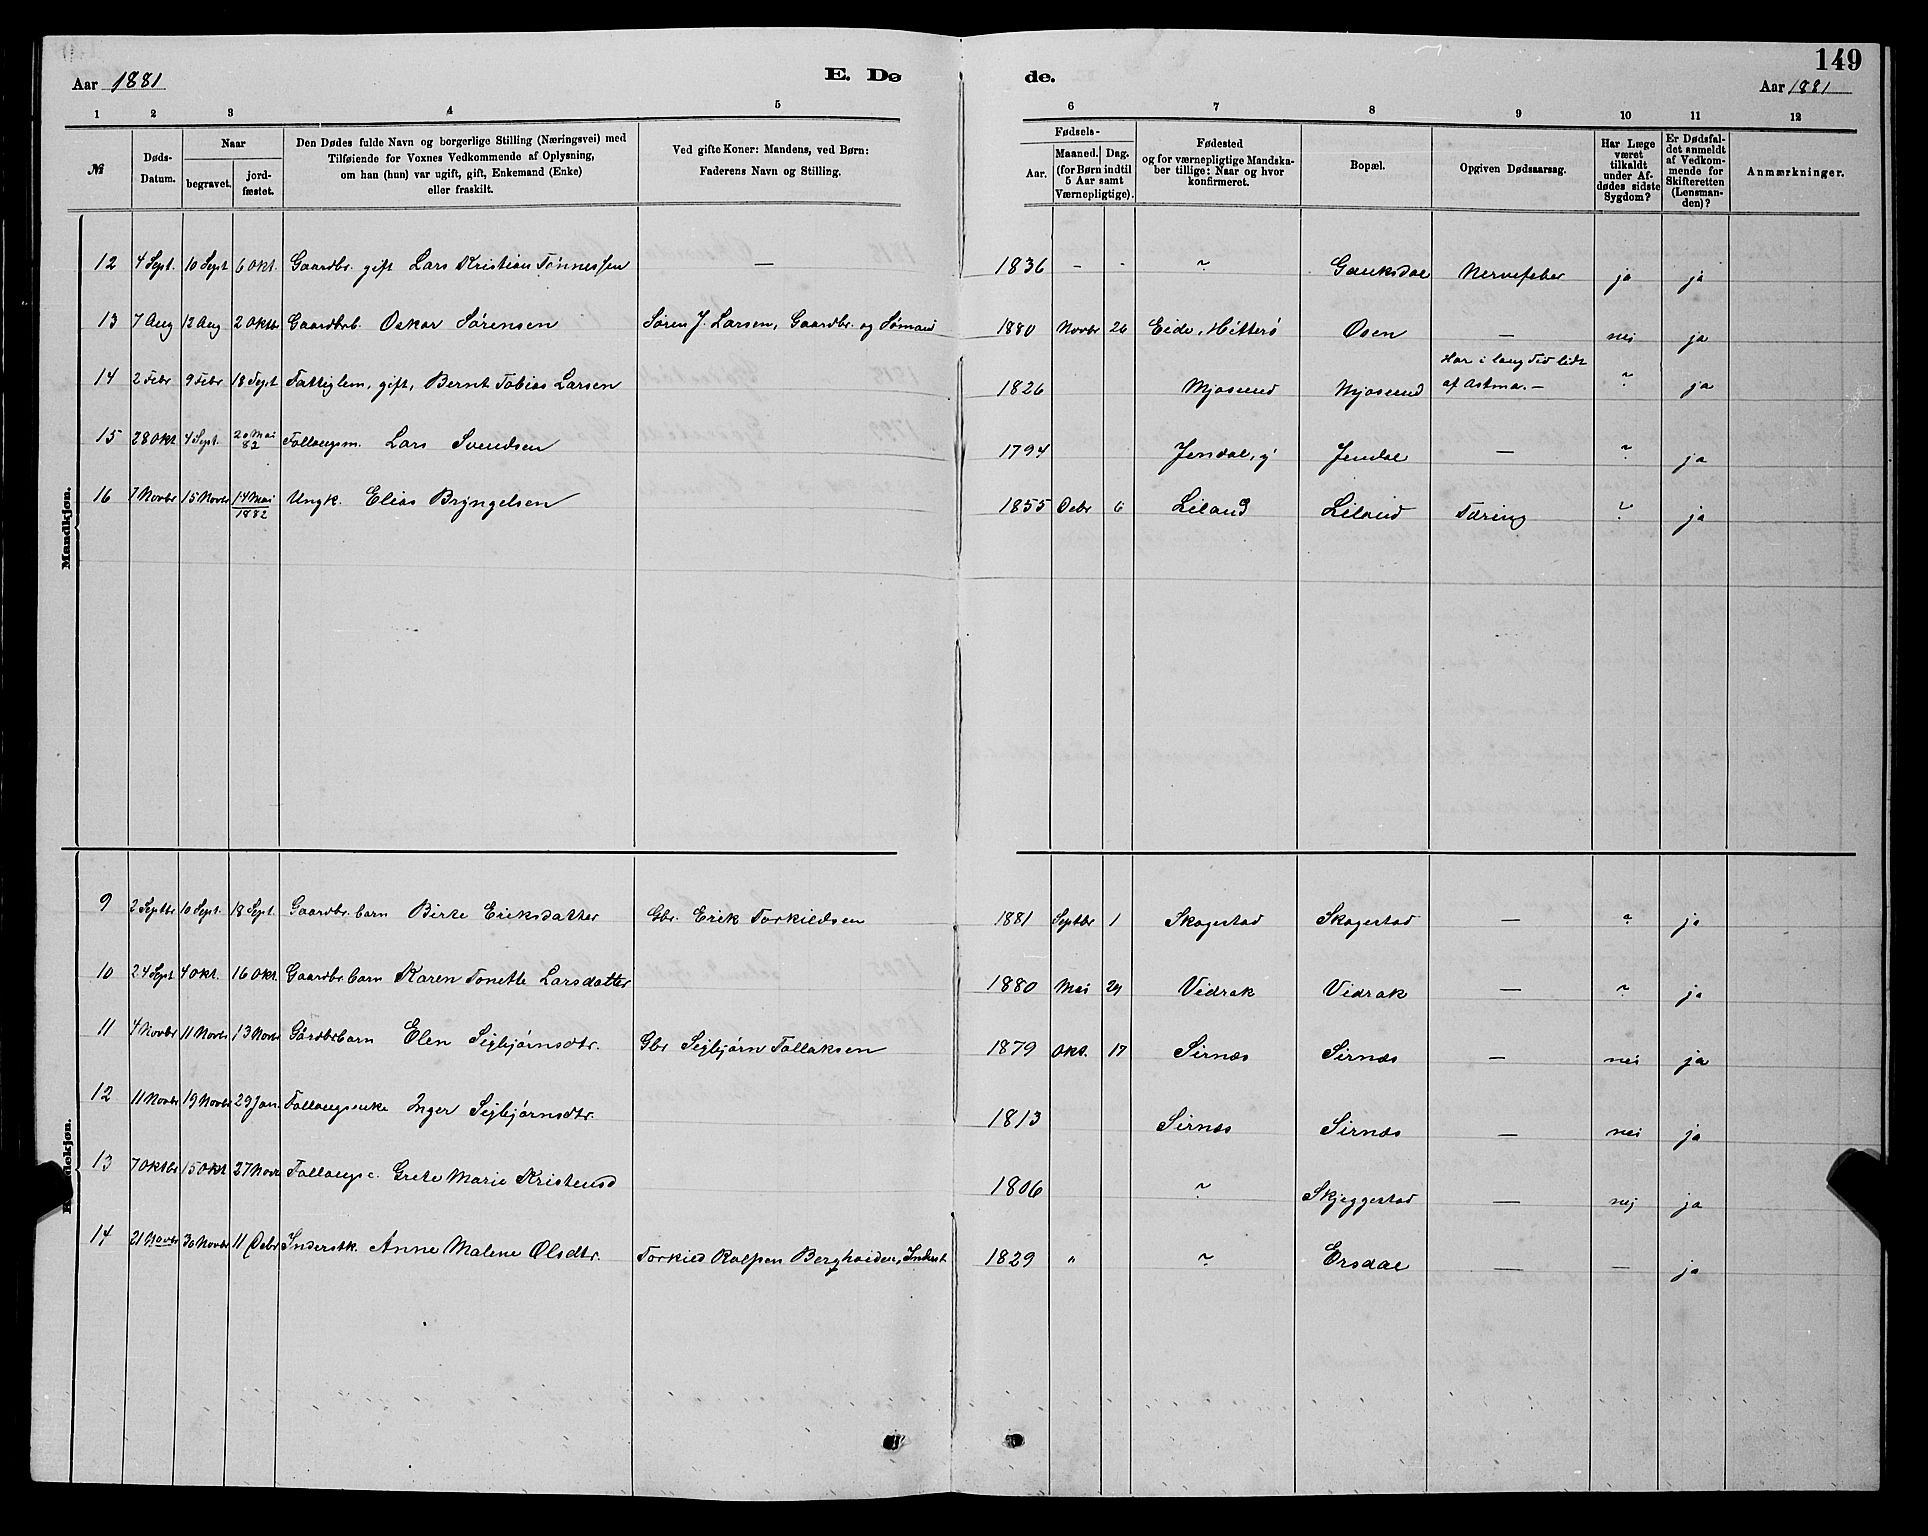 149
Aar 1881 E. Dø de. Aar 1881
1 2 3 4 5 6 7 8 9 10 11 12
№
Døds-
Datum.
Naar
begravet.
jord-
fæstet.
Den Dødes fulde Navn og borgerlige Stilling (Næringsvei) med
Tilføiende for Voxnes Vedkommende af Oplysning,
om han (hun) var ugift, gift, Enkemand (Enke)
eller fraskilt.
Ved gifte Koner: Mandens, ved Børn:
Faderens Navn og Stilling.
Fødsels-
Aar.
Maaned. Dag.
(for Børn indtil
5 Aar samt
Værnepligtige).
Fødested
og for værnepligtige Mandska-
ber tillige: Naar og hvor
konfirmeret.
Bopæl.
Opgiven Dødsaarsag.
Har Læge
været
tilkaldt
under Af-
dødes sidste
Sygdom?
Er Dødsfal-
det anmeldt
af Vedkom-
mende for
Skifteretten
(Lensman-
den)?
Anmærkninger.
Mandkjøn.
12 4 Sept. 10 Sept 6 Okt. Gaardbr. gift Lars Kristian Tønnessen — 1836 - - ? Gauksdal Nervefeber ja ja
13 7 Aug 12 Aug 2 Oktbr Gaardbrb. Oskar Sørensen Søren J. Larsen, Gaardbr. og Sømand 1880 Novbr 26 Eide, Hitterø Osen — nei ja
14 2 Febr 9 Febr 18 Sept Fattiglem, gift, Bernt Tobias Larsen 1826 Mjosund Mjosund Har i lang Tid lidt
af Astma. — ? ja
15 28 Okt. 4 Sept. 20 Mai
82 Follaugsm. Lars Svendsen 1794 Jendal, Jendal — ? ja
16 7 Novbr 15 Novbr 14 Mai
1882 Ungk. Elias Bryngelsen 1855 Debr 6 Leland Leland Tæring ? ja
9 2 Septbr 10 Sept. 18 Sept. Gaardbr. barn Birte Eriksdatter Gbr. Erik Torkildsen 1881 Septbr 1 Skogestad Skogestad — ? ja
10 24 Sept 4 Okt. 16 Okt. Gaardbr. barn Karen Tonette Larsdatter 1880 Mai 29 Vidrak Vidrak — ? ja
11 4 Novbr 11 Novbr 13 Novbr Gårdbrbarn Elen Sigbjørnsdtr. Gbr Sigbjørn Tollaksen 1879 Okt. 17 Sirnæs Sirnæs — nei ja
12 11 Novbr 19 Novbr 29 Jan. Follaugsenke Inger Sigbjørnsdtr. 1813 Sirnæs Sirnæs — nei ja
13 7 Oktbr 15 Okt 27 Novr Follaugse. Grete Marie Kristensd 1806 ? Skjeggestad — nej ja
14 21 Novbr 30 Novbr 11 Debr Inderstk. Anne Malene Olsdtr. Torkild Rolfsen Bergheiden, Inderst 1829 " ? Ersdal — — ja